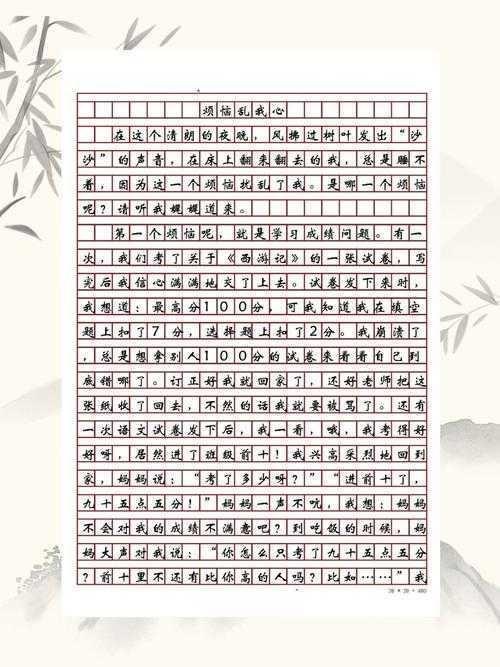 烦恼乱我心
在这个清朗的夜晚，风拂过树叶发出“沙
沙”的声音，在床上翻来翻去的我，总是睡不
着，因为这一个烦恼扰乱了我。是哪一个烦恼
呢？请听我娓娓道来。
第一个烦恼呢，就是学习成绩问题。有一
次，我们考了关于《西游记》的一张试卷，写
完后我信心满满地交了上去。试卷发下来时，
我想道：最高分100分，可我知道我在填空
题上扣了7分，选择题上扣了2分。我崩溃了
，总是想拿别人100分的试卷来看看自己到
底错哪了。订正好我就回家了，还好老师把这
张纸收了回去，不然的话我就要被骂了。还有
一次语文试卷发下后，我一看，哦，我考得好
好呀，居然进了班级前十！我兴高采烈地回到
家，妈妈说：“考了多少呀？”“进前十了，
九十五点五分！”妈妈一声不吭，我想：妈妈
不会对我的成绩不满意吧？到吃饭的时候，妈
妈大声对我说：“你怎么只考了九十五点五分
？前十里不还有比你高的人吗？比如……”我
20*20=400